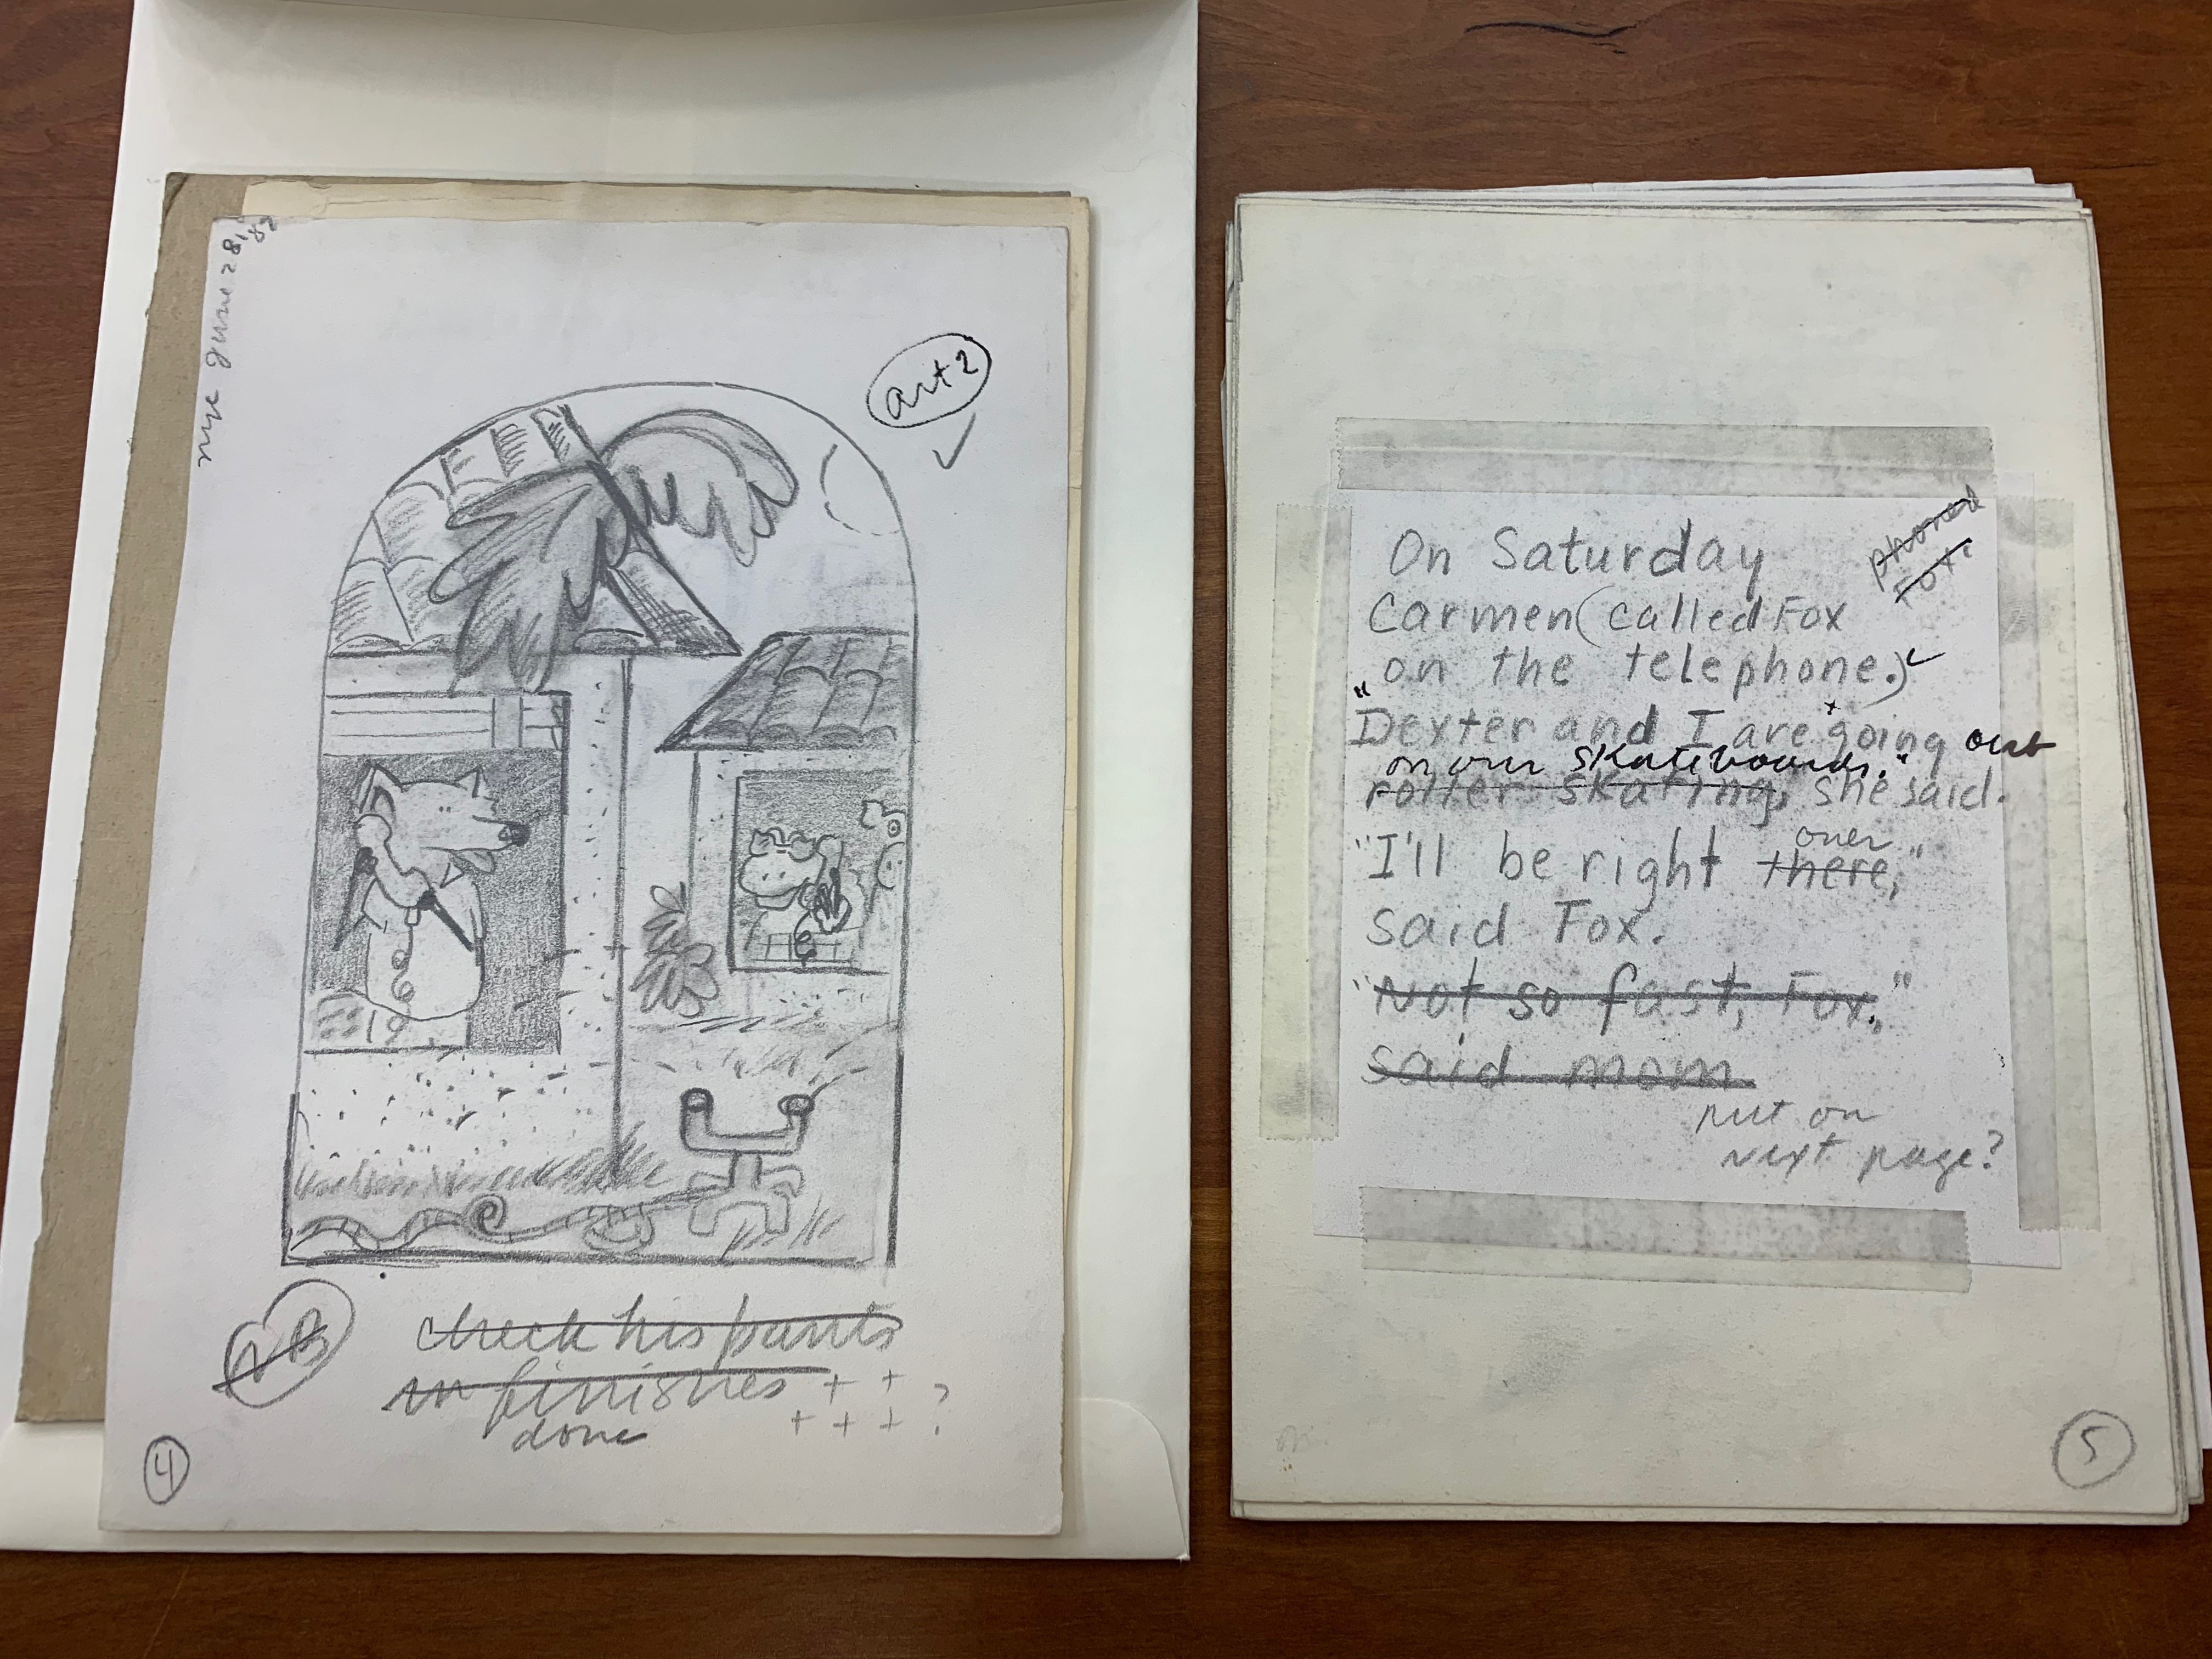 nyc June 28, 82
art 2
NB
check his pants
in finishes + +
+ + + ?
done
4
On Saturday
phoned
Fox.
Carmen (called Fox
on the telephone.)
"Dexter and I are going out
on our skateboards,"
roller skating, she said.
over
"I'll be right there,"
said Fox.
"Not so fast, Fox,"
said mom
put on
next page?
5